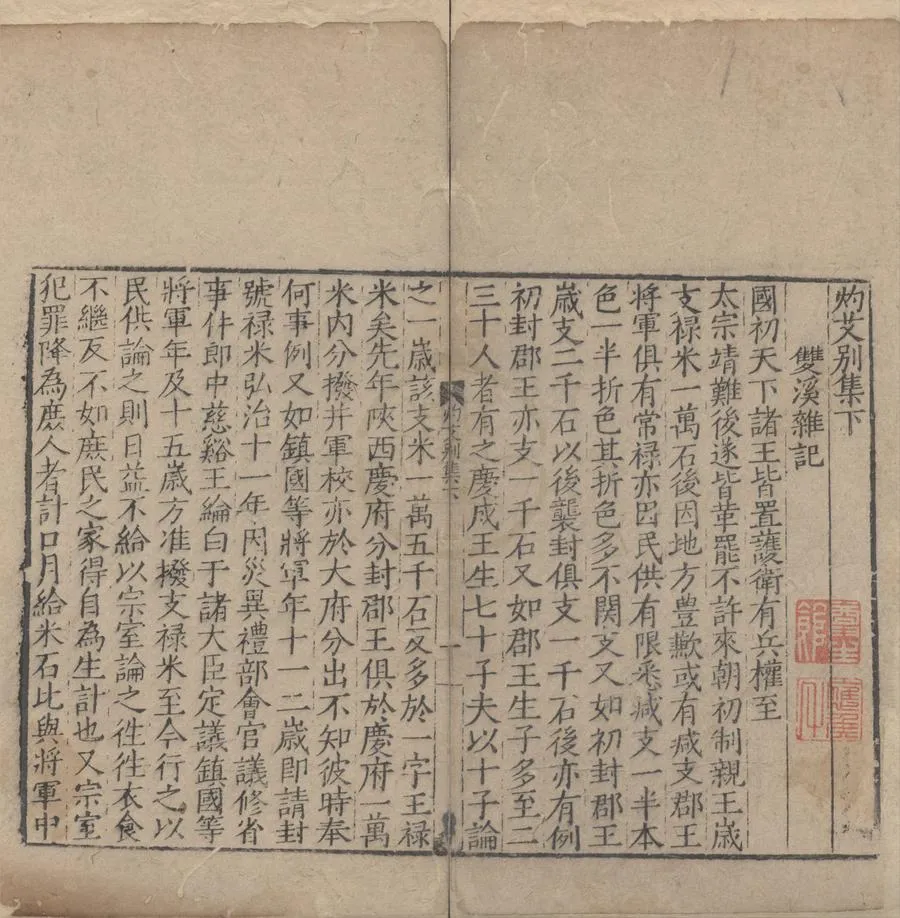 灼艾别集下
雙溪雜記
國初天下諸王皆置護衛有兵權至
太宗靖難後遂皆革罷不許來朝初制親王歲
支禄米一萬石後因地方豊歉或有减支郡王
將軍俱有常禄亦因民供有限悉减支一半本
色一半折色其折色多不関支又如初封郡王
歲支二千石以後襲封俱支一千石後亦有例
初封郡王亦支一千石又如郡王生子多至二
三十人者有之慶成王生七十子夫以十子論
灼艾别集下
一
之一歲該支米一萬五千石反多於一字王禄
米矣先年陜西慶府分封郡王俱於慶府一萬
米内分撥并軍校亦於大府分出不知彼時奉
何事例又如鎮國等將軍年十一二歲即請封
號禄米弘治十一年因災異禮部會官議修省
事件郎中慈谿王綸白于諸大臣定議鎮國等
將軍年及十五歲方准撥支禄米至今行之以
民供論之則日益不給以宗室論之徃徃衣食
不繼反不如庶民之家得自為生計也又宗室
犯罪降為庶人者計口月給米石比與將軍中